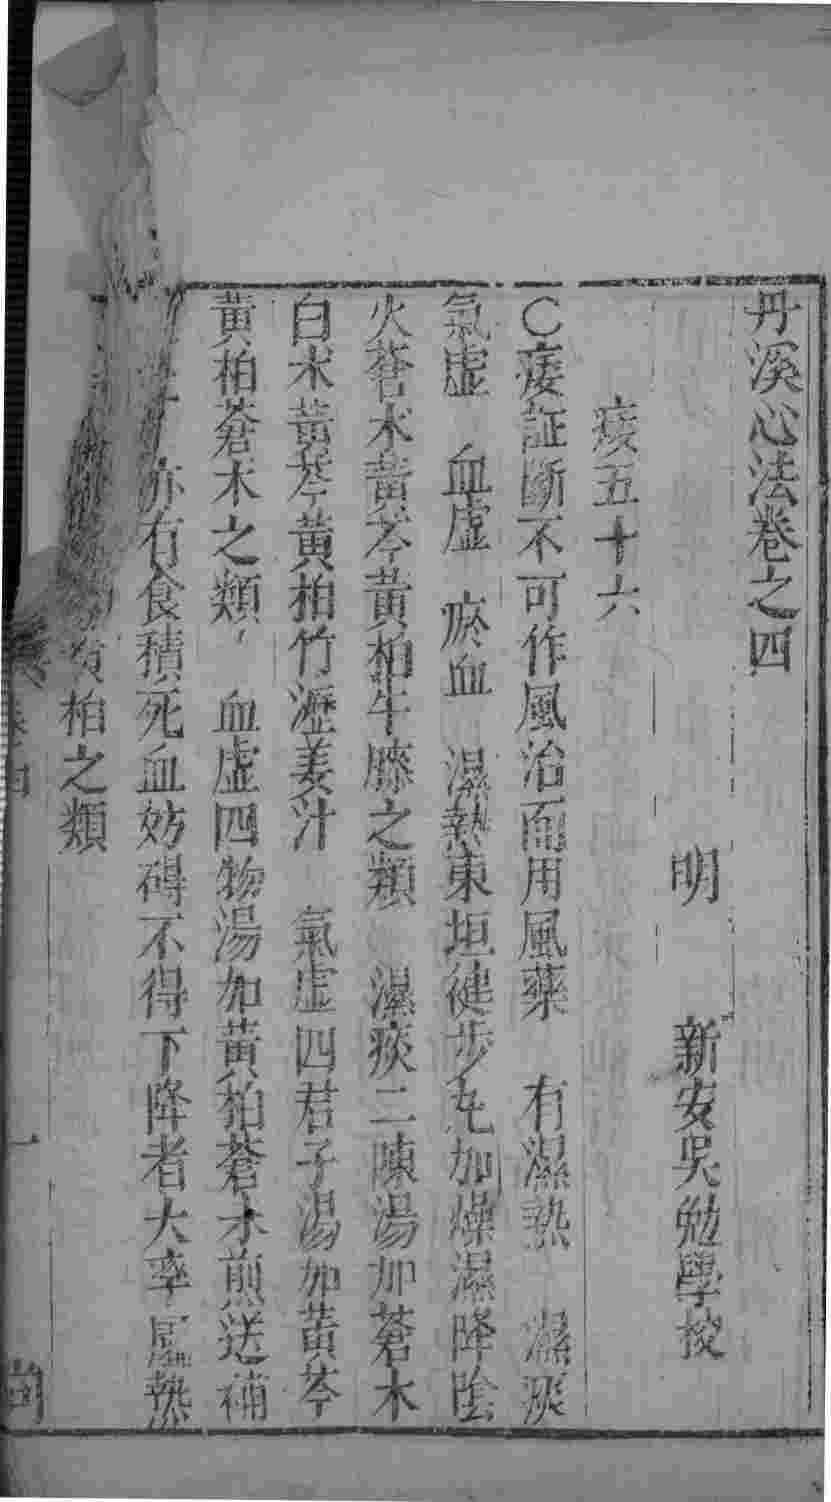 丹溪心法卷之四
明 新安吳勉學校
痿五十六
○痿証斷不可作風治而用風藥 有濕熱 濕痰
氣虛 血虛 瘀血 濕熱東垣健步丸加燥濕降陰
火蒼朮黃芩黃柏牛膝之類 濕痰二陳湯加蒼朮
白朮黃芩黃柏竹瀝姜汁 氣虛四君子湯加黃芩
黃柏蒼朮之類 血虛四物湯加黃柏蒼朮煎送補
亦有食積死血妨碍不得下降者大率屬熱
柏之類
一